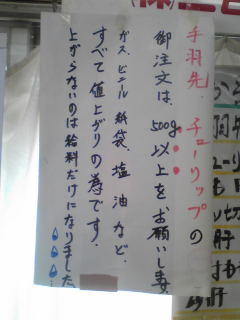 手羽先、チューリップの
御注文は、500g以上をお願いします
ガス、ビニール、紙袋、塩、油など、
すべて値上がりの為です。
上がらないのは給料だけになりました